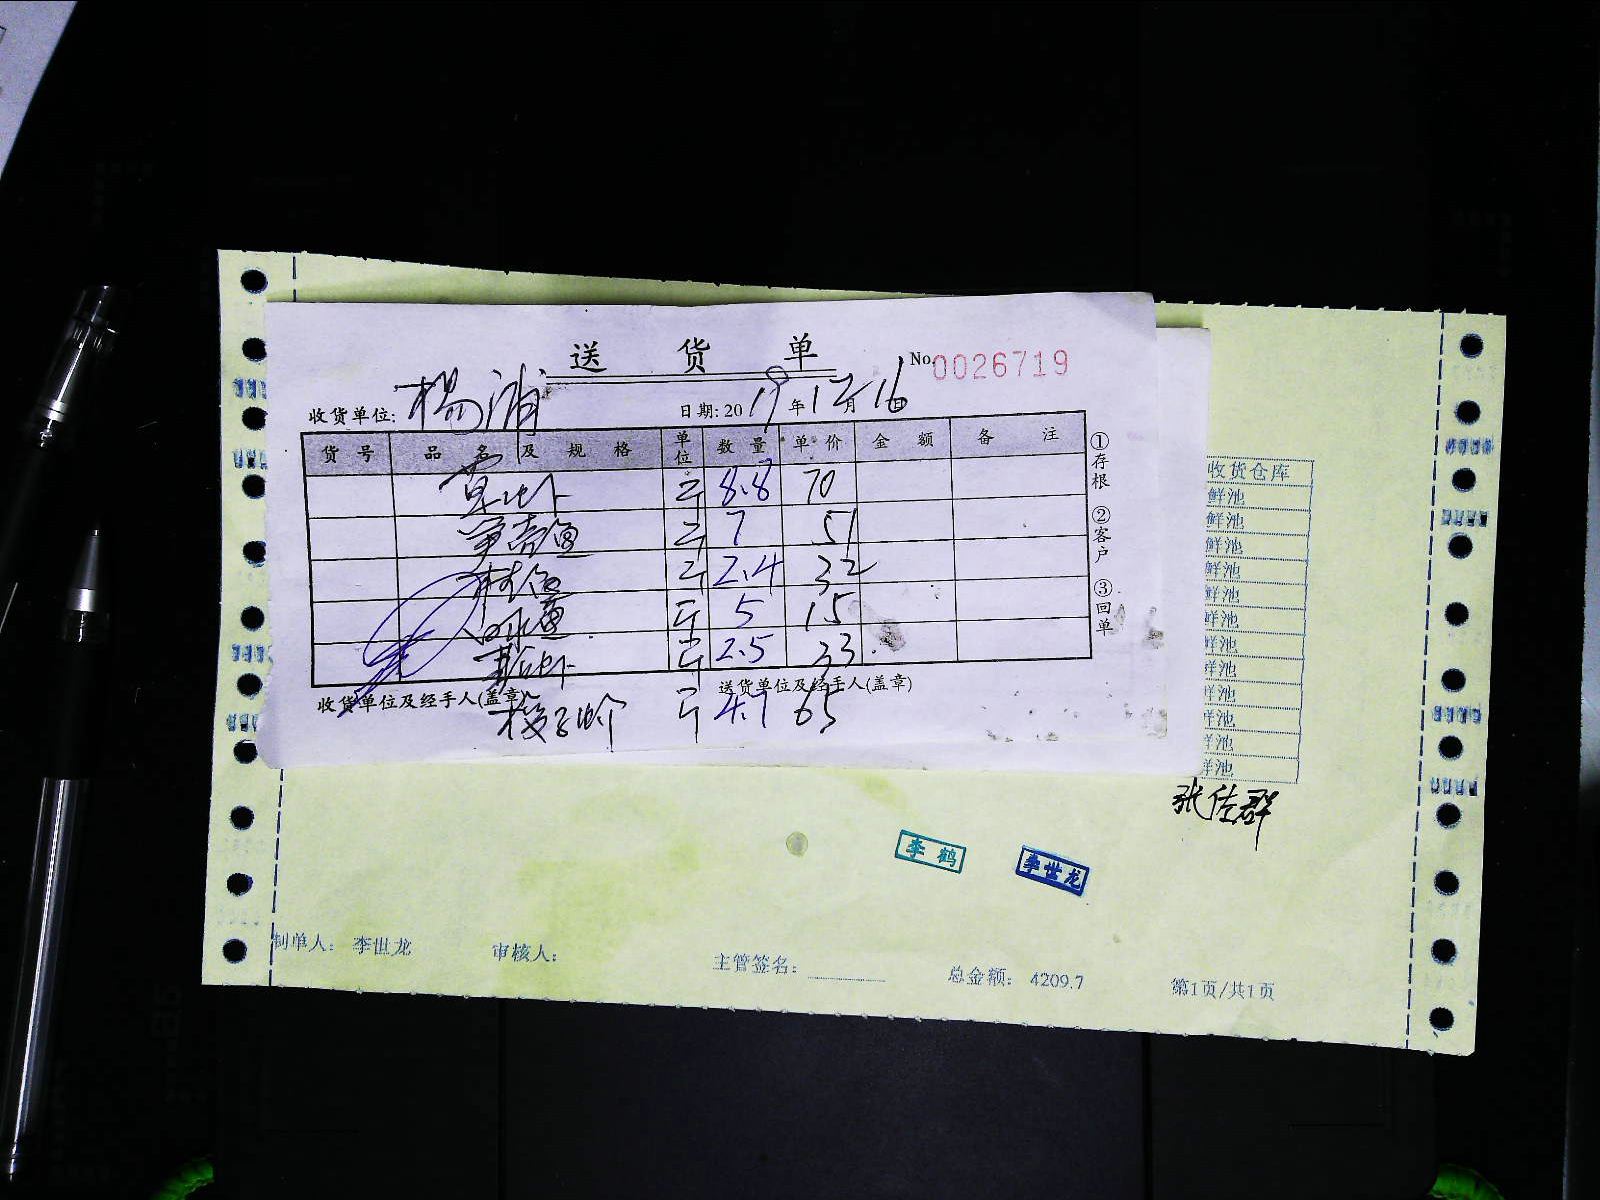 送货单
No.0026719
收货单位: 杨浦
日期: 2019年12月16日
货号 品名及规格 单位 数量 单价 金额 备注
斤 8.8 70
斤 7 51
斤 2.4 32
斤 5 15
斤 2.5 33
收货单位及经手人(盖章) 送货单位及经手人(盖章)
梭子蟹 斤 4.7 65
①存根 ②客户 ③回单
收货仓库
鲜池
鲜池
鲜池
鲜池
鲜池
鲜池
鲜池
鲜池
鲜池
鲜池
鲜池
鲜池
张佐群
李鹤
李世龙
制单人: 李世龙 审核人: 主管签名: 总金额: 4209.7 第1页/共1页